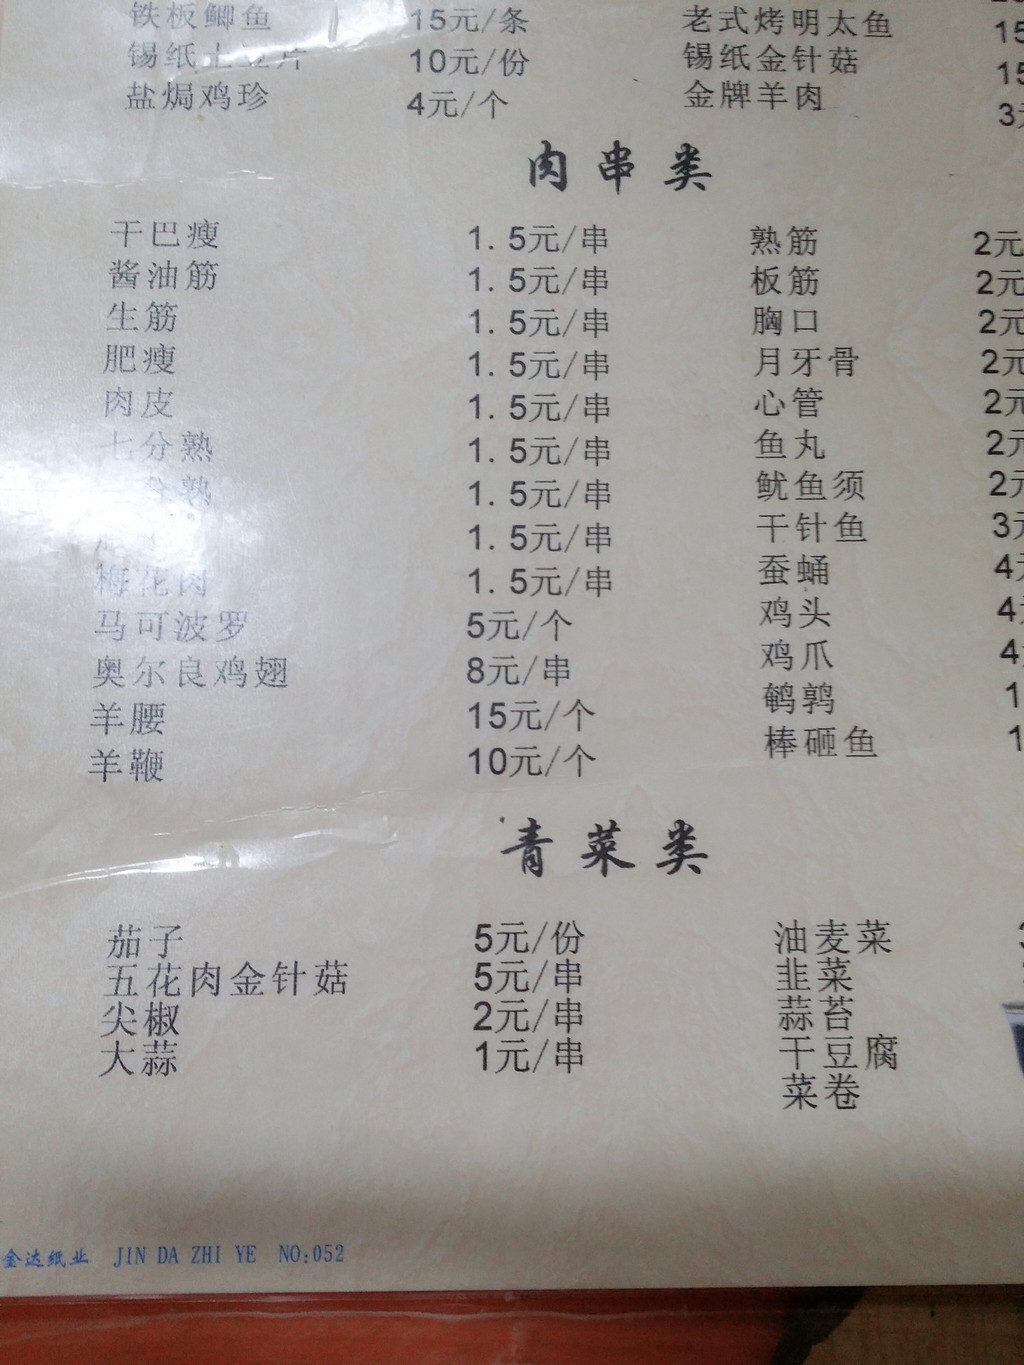 铁板鲫鱼 15元/条 老式烤明太鱼 15
锡纸土豆片 10元/份 锡纸金针菇 15
盐焗鸡珍 4元/个 金牌羊肉 3
肉串类
干巴瘦 1.5元/串 熟筋 2元
酱油筋 1.5元/串 板筋 2元
生筋 1.5元/串 胸口 2元
肥瘦 1.5元/串 月牙骨 2元
肉皮 1.5元/串 心管 2元
七分熟 1.5元/串 鱼丸 2元
分熟 1.5元/串 鱿鱼须 2元
1.5元/串 干针鱼 3元
梅花肉 1.5元/串 蚕蛹 4元
马可波罗 5元/个 鸡头 4
奥尔良鸡翅 8元/串 鸡爪 4
羊腰 15元/个 鹌鹑 1
羊鞭 10元/个 棒砸鱼 1
青菜类
茄子 5元/份 油麦菜
五花肉金针菇 5元/串 韭菜
尖椒 2元/串 蒜苔
大蒜 1元/串 干豆腐
菜卷
金达纸业 JIN DA ZHI YE NO:052